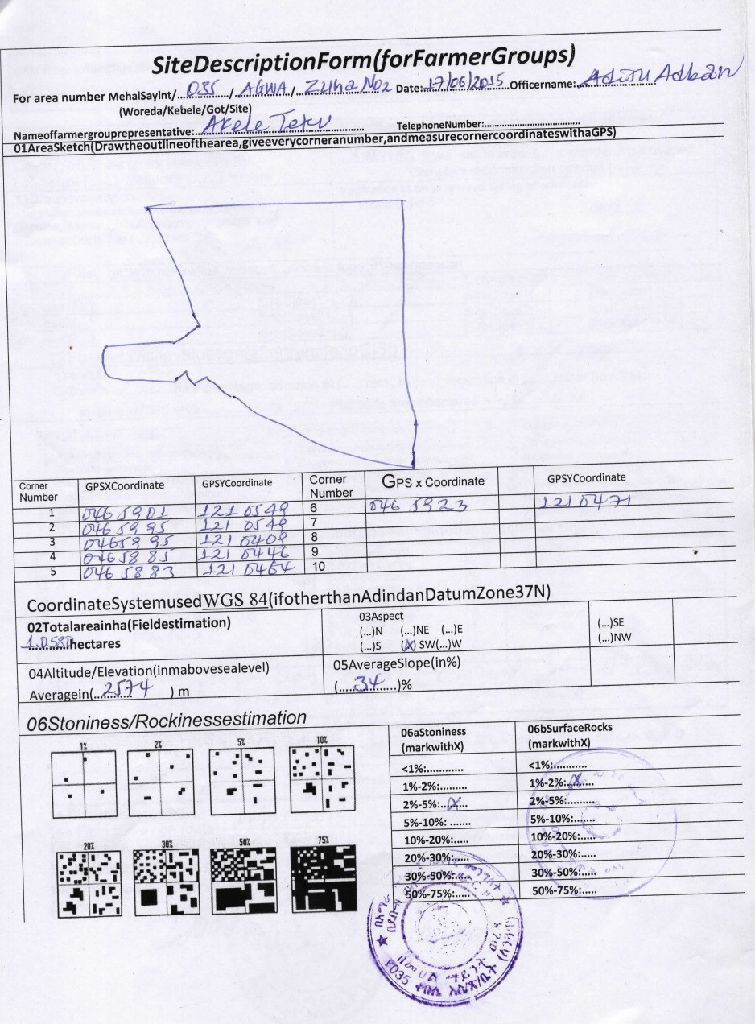 SiteDescriptionForm(forFarmerGroups)
For area number MehalSayint/...035.../AGWA/Zuha No2 Date:17/06/2015.Officername:
(Woreda/Kebele/Got/Site)
Nameoffarmergrouprepresentative: TelephoneNumber:
01AreaSketch(Drawtheoutlineofthearea,giveeverycorneranumber,andmeasurecornercoordinateswithaGPS)
Corner Number GPSXCoordinate GPSYCoordinate Corner Number GPS x Coordinate GPSYCoordinate
1 0465901 1210549 6 0465923 1210471
2 0465995 1210549 7
3 0465995 1210409 8
4 0465885 1210446 9
5 0465883 1210464 10
CoordinateSystemusedWGS 84(ifotherthanAdindanDatumZone37N)
02Totalareainha(Fieldestimation)
1.0580hectares
03Aspect
(...)N (...)NE (...)E (...)SE
(...)S (X) SW(...)W (...)NW
04Altitude/Elevation(inmabovesealevel)
Averagein(...2574...) m
05AverageSlope(in%)
(....34....)%
06Stoniness/Rockinessestimation
1% 2% 5% 10%
20% 30% 50% 75%
06aStoniness (markwithX) 06bSurfaceRocks (markwithX)
<1%:........... <1%:...........
1%-2%:......... 1%-2%:..X..
2%-5%:..X.. 2%-5%:.........
5%-10%: ....... 5%-10%:.....
10%-20%:..... 10%-20%:.....
20%-30%:..... 20%-30%:.....
30%-50%:..... 30%-50%:.....
50%-75%:..... 50%-75%:.....